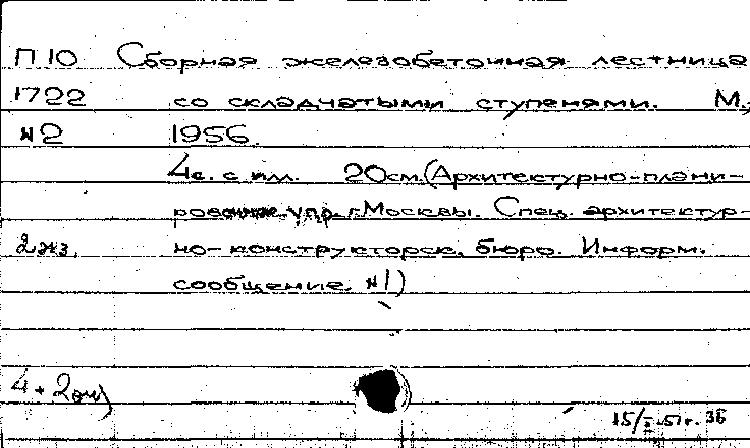 П10 Сборная железобетонная лестница
1722 со складчатыми ступенями. М.,
№2 1956.
4с. с илл. 20см. (Архитектурно-плани-
ровочное упр. г.Москвы. Спец. архитектур-
2экз. но-конструкторск. бюро. Информ.
сообщение. №1)
4+2экз
15/I-57г. 36